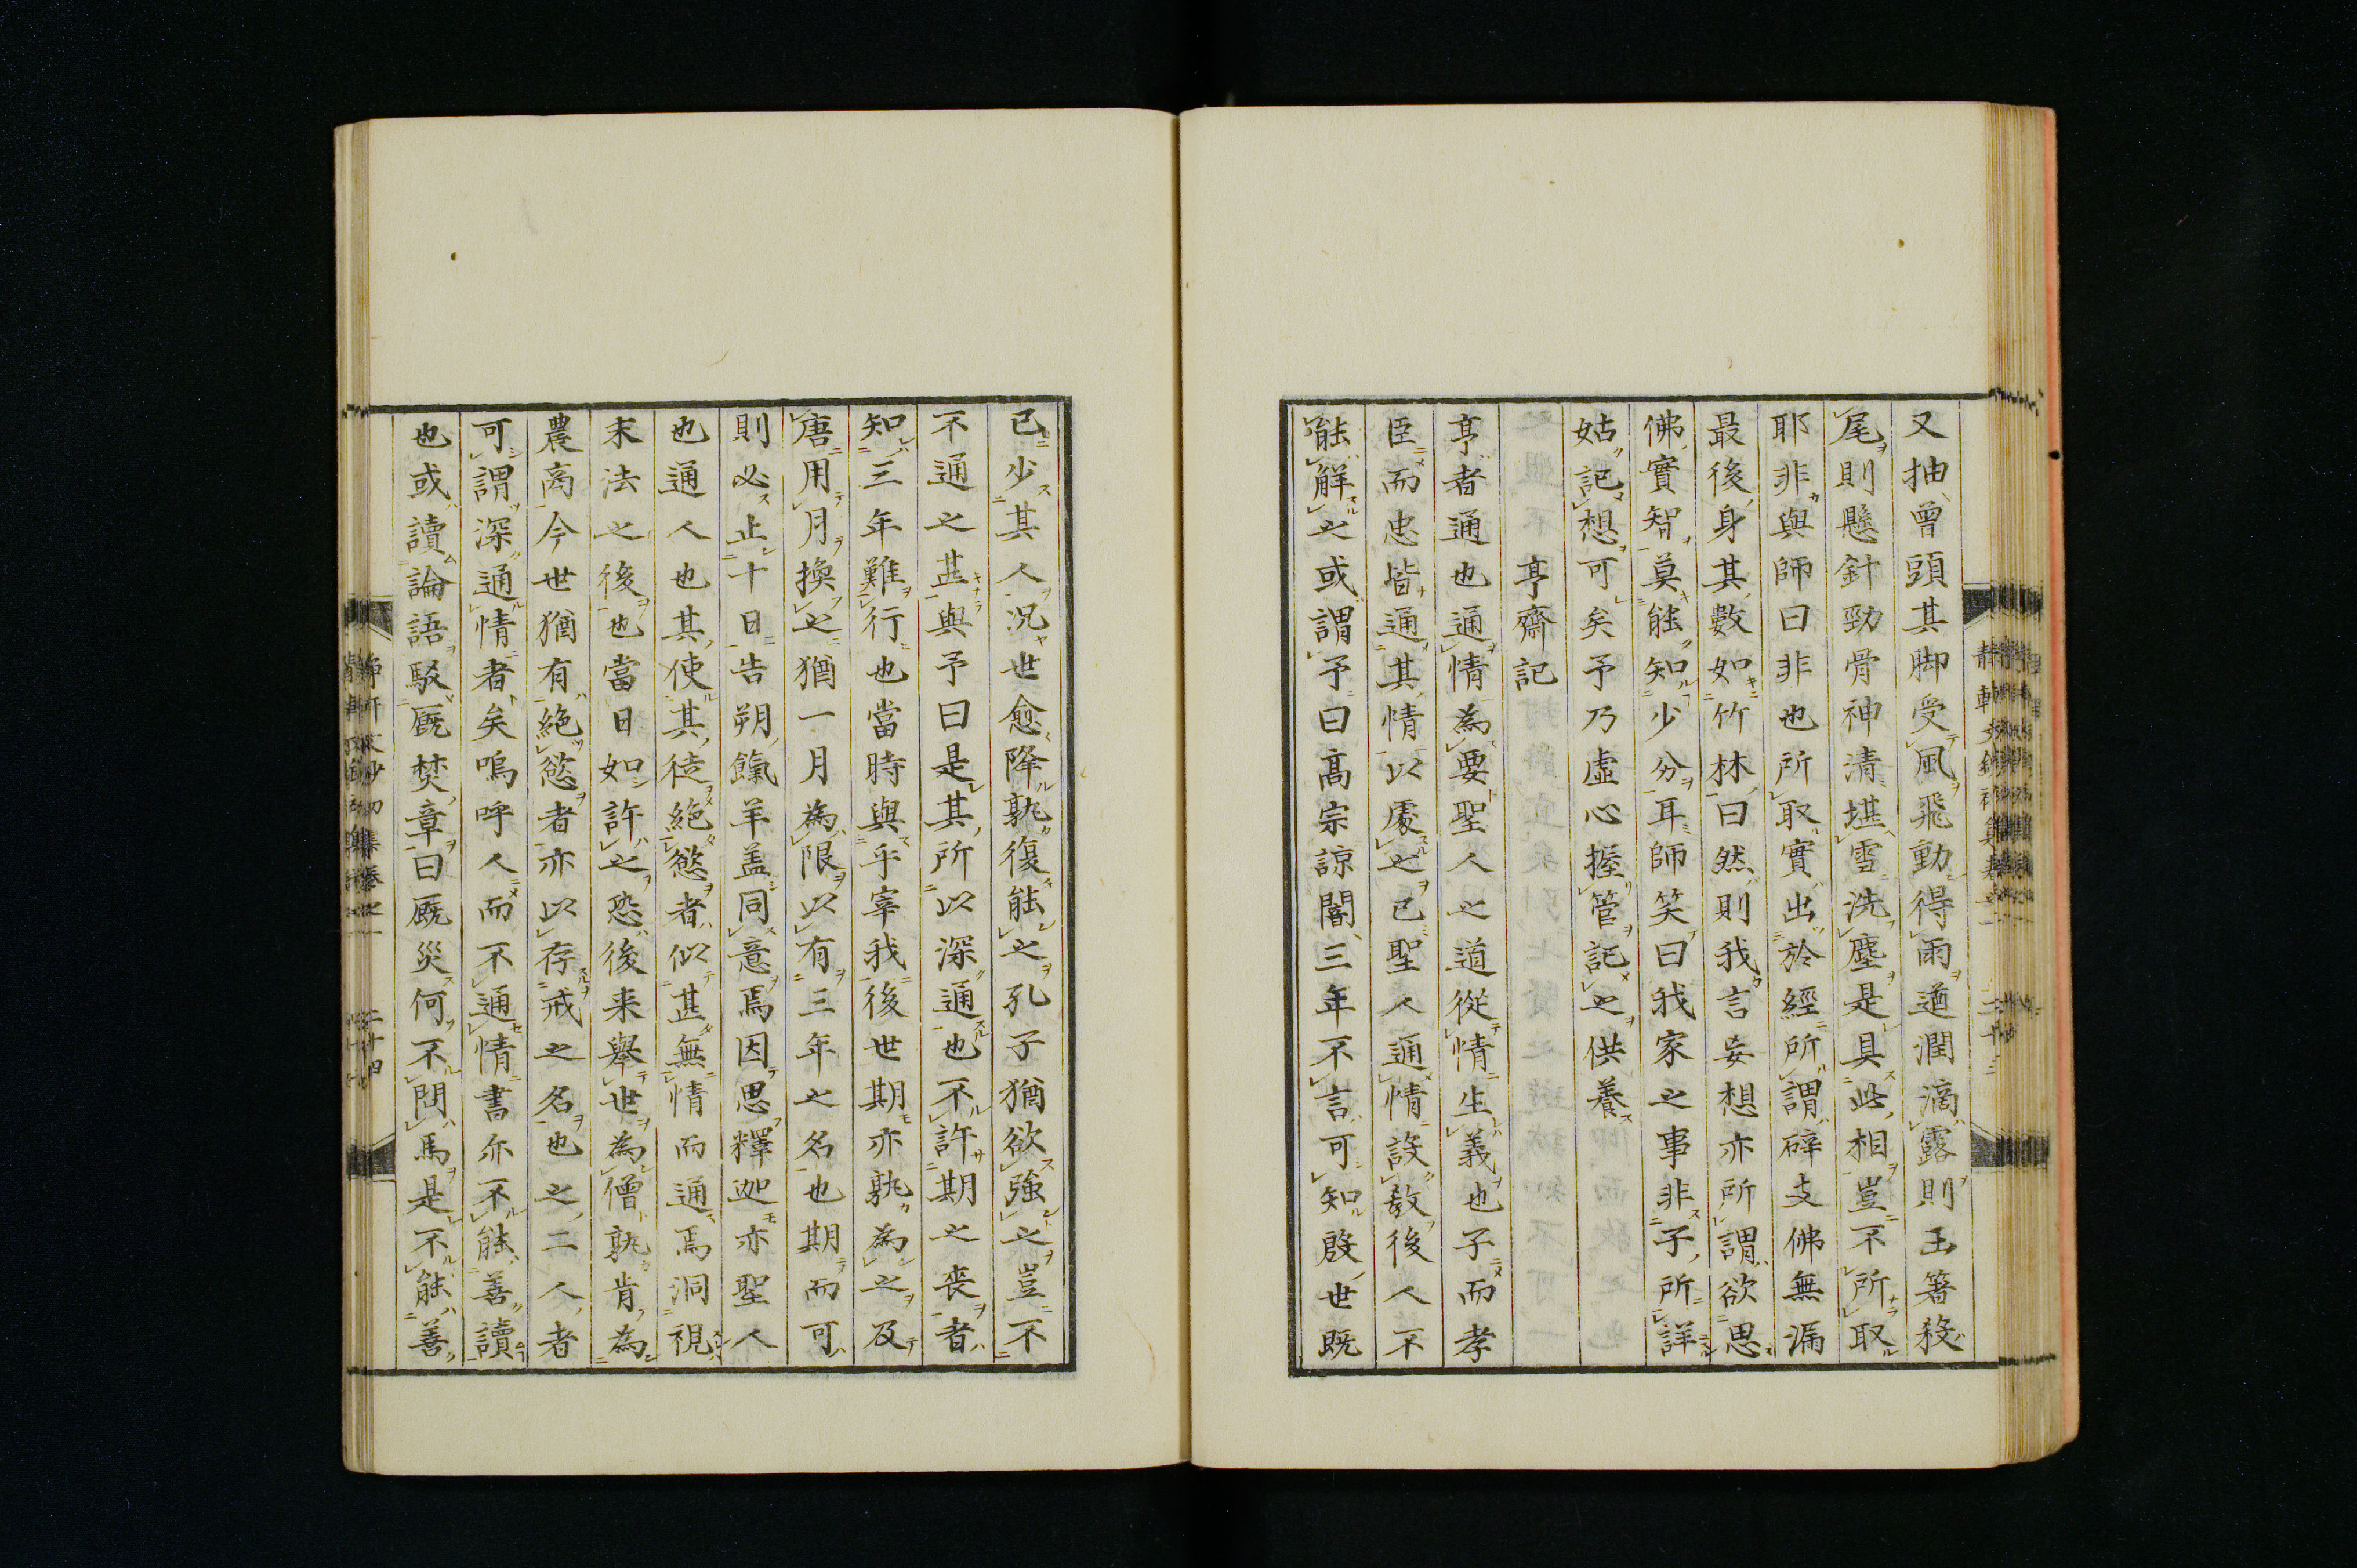 又抽曾頭其脚受風飛動得雨遒潤滴露則玉箸殺
尾則懸針勁骨神清堪雪洗塵是具此相豈不所取
耶非與師曰非也所取實出於經所謂碎支佛無漏
最後身其數如竹林曰然則我言妄想亦所謂欲思
佛實智莫能知少分耳師笑曰我家之事非子所詳
姑記想可矣予乃虛心握管記之供養
亨齋記
亨者通也通情為要聖人之道從情生義也子而孝
臣而忠皆通其情以處之已聖人通情設教後人不
能解之或謂予曰高宗諒闇三年不言可知殷世既
已少其人況世愈降孰復能之孔子猶欲強之豈不
不通之甚與予曰是其所以深通也不許期之喪者
知三年難行也當時與乎宰我後世期亦孰為之及
唐用月換之猶一月為限以有三年之名也期而可
則必止十日告朔餼羊盖同意焉因思釋迦亦聖人
也通人也其使其徒絶慾者似甚無情而通焉洞視
末法之後也當日如許之恐後来舉世為僧孰肯為
農商今世猶有絶慾者亦以存戒之名也之二人者
可謂深通情者矣嗚呼人而不通情書亦不能善讀
也或讀論語駁厩焚章曰厩災何不問馬是不能善
二十四